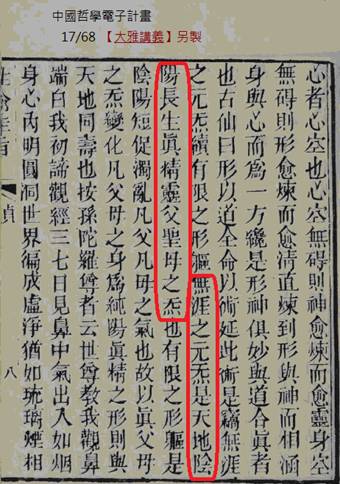 中國哲學電子計畫
17/68 【大雅講義】另製
心者心空也心空無碍則神愈煉而愈靈身空
無碍則形愈煉而愈清直煉到形與神而相涵
身與心而爲一方纔是形神俱妙與道合眞者
也古仙曰形以道全命以術延此術是竊無涯
之元炁續有限之形軀無涯之元炁是天地陰
陽長生眞精靈父聖母之炁也有限之形軀是
陰陽短促濁亂凡父凡母之氣也故以眞父母
之炁變化凡父母之身爲純陽眞精之形則與
天地同壽也按孫陀羅尊者云世尊教我觀鼻
端白我初諦觀經三七日見鼻中氣出入如烟
身心內明圓洞世界徧成虛淨猶如琉璃煙相
貞 八